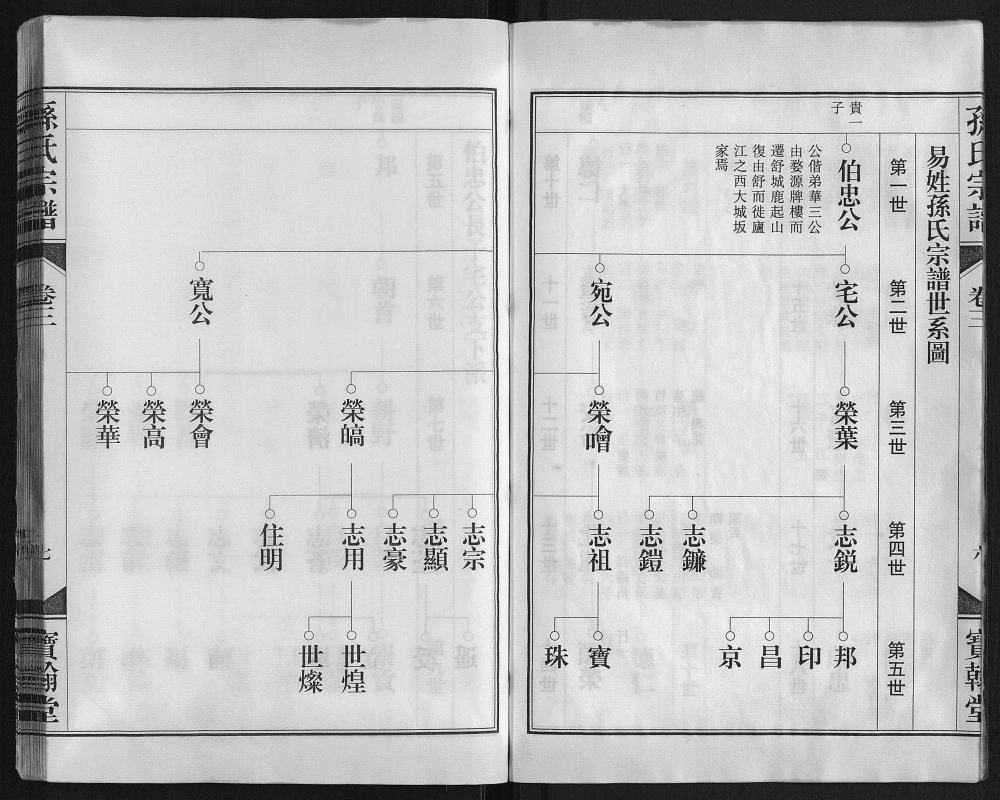 孫氏宗譜
卷三
六
寶翰堂
易姓孫氏宗譜世系圖
第一世
第二世
第三世
第四世
第五世
貴一
子
伯忠公
公偕弟華三公
由婺源牌樓而
遷舒城鹿起山
復由舒而徙廬
江之西大城坂
家焉
宅公
榮葉
志銳
邦
印
昌
京
志鐮
志鎧
宛公
榮噲
志祖
寶
珠
志宗
志顯
志豪
榮皜
志用
世煌
世燦
住明
寬公
榮會
榮高
榮華
孫氏宗譜
卷三
七
寶翰堂